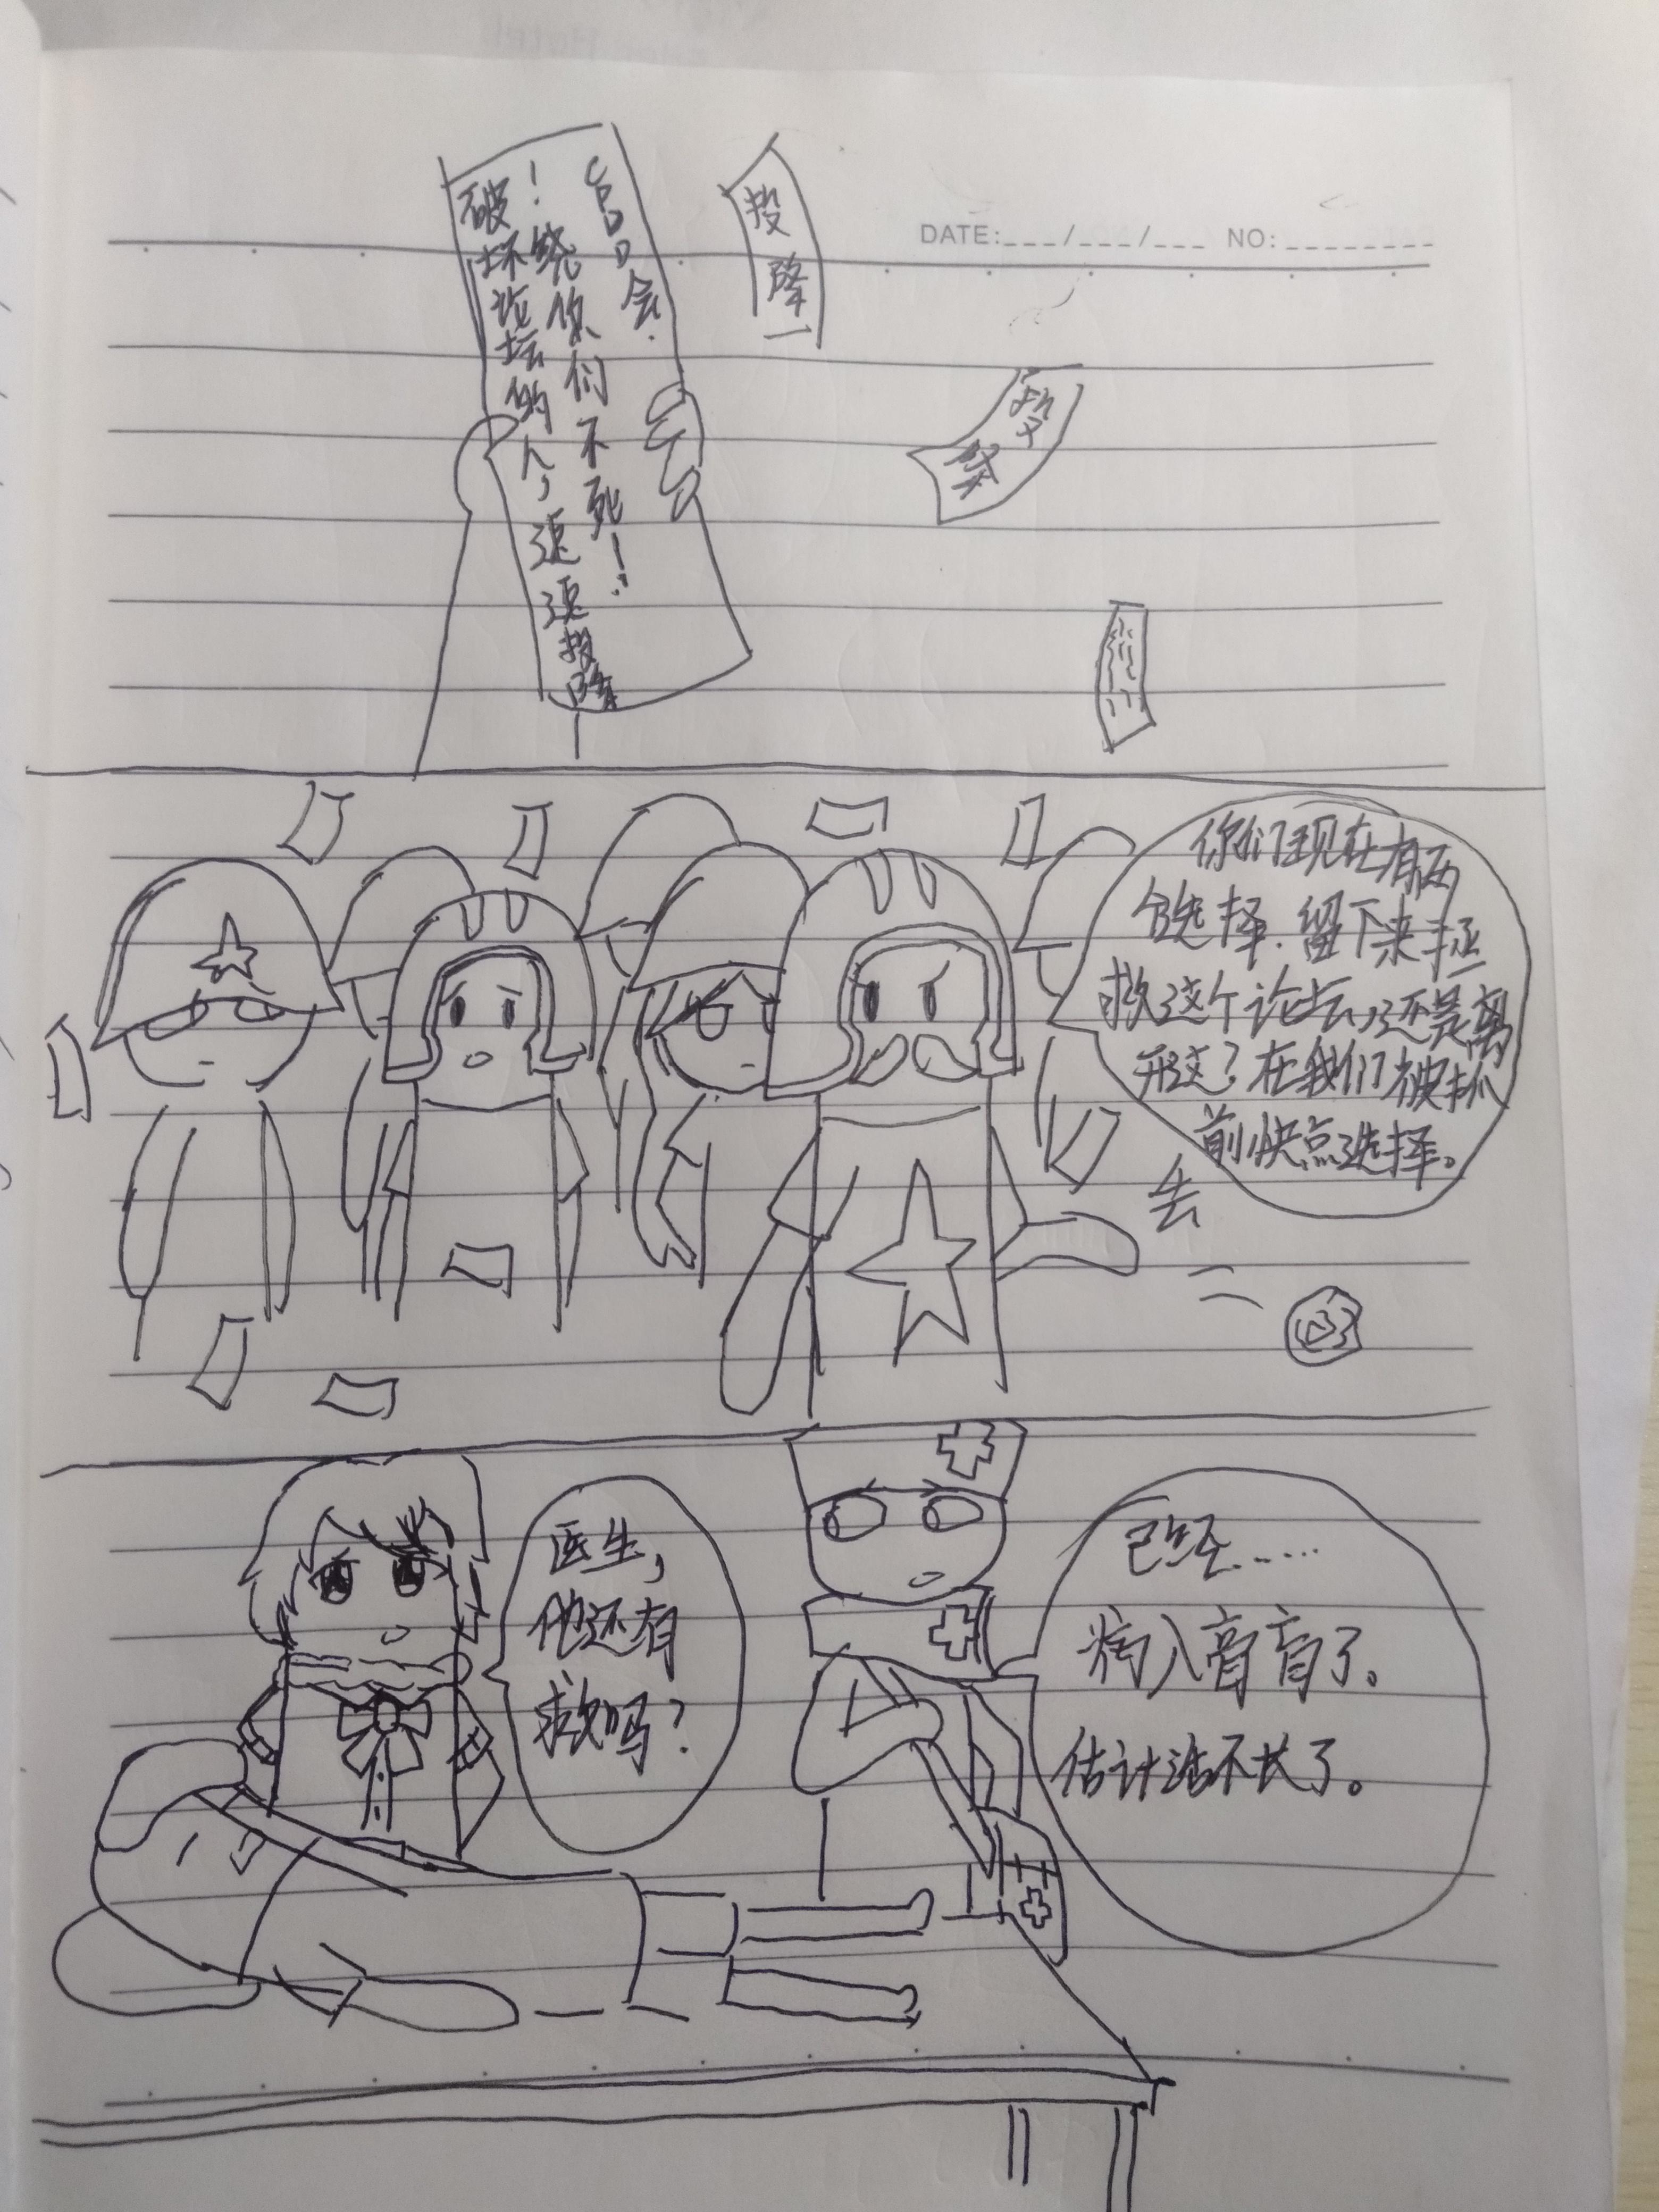 DATE:___/___/___ NO:________
破坏论坛的人，速速投降
！绕你们不死！
会.
投降
投
降
你们现在有两
个选择.留下来拯
救这个论坛,还是离
开这？在我们被抓
前快点选择。
去
医生，
他还有
救吗？
已经......
病入膏肓了。
估计活不长了。